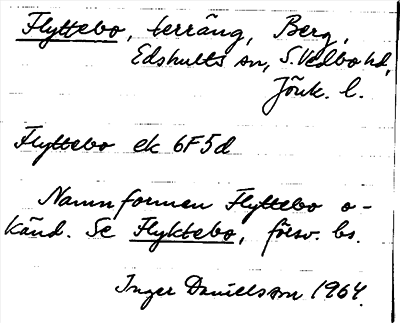 Flyttebo, terräng, Berg,
Edshults sn, S. Vedbo hd,
Jönk. l.
Flyttebo ek 6F5d
Namnformen Flyttebo o-
känd. Se Flyktebo, försv. bs.
Inger Danielsson 1964.